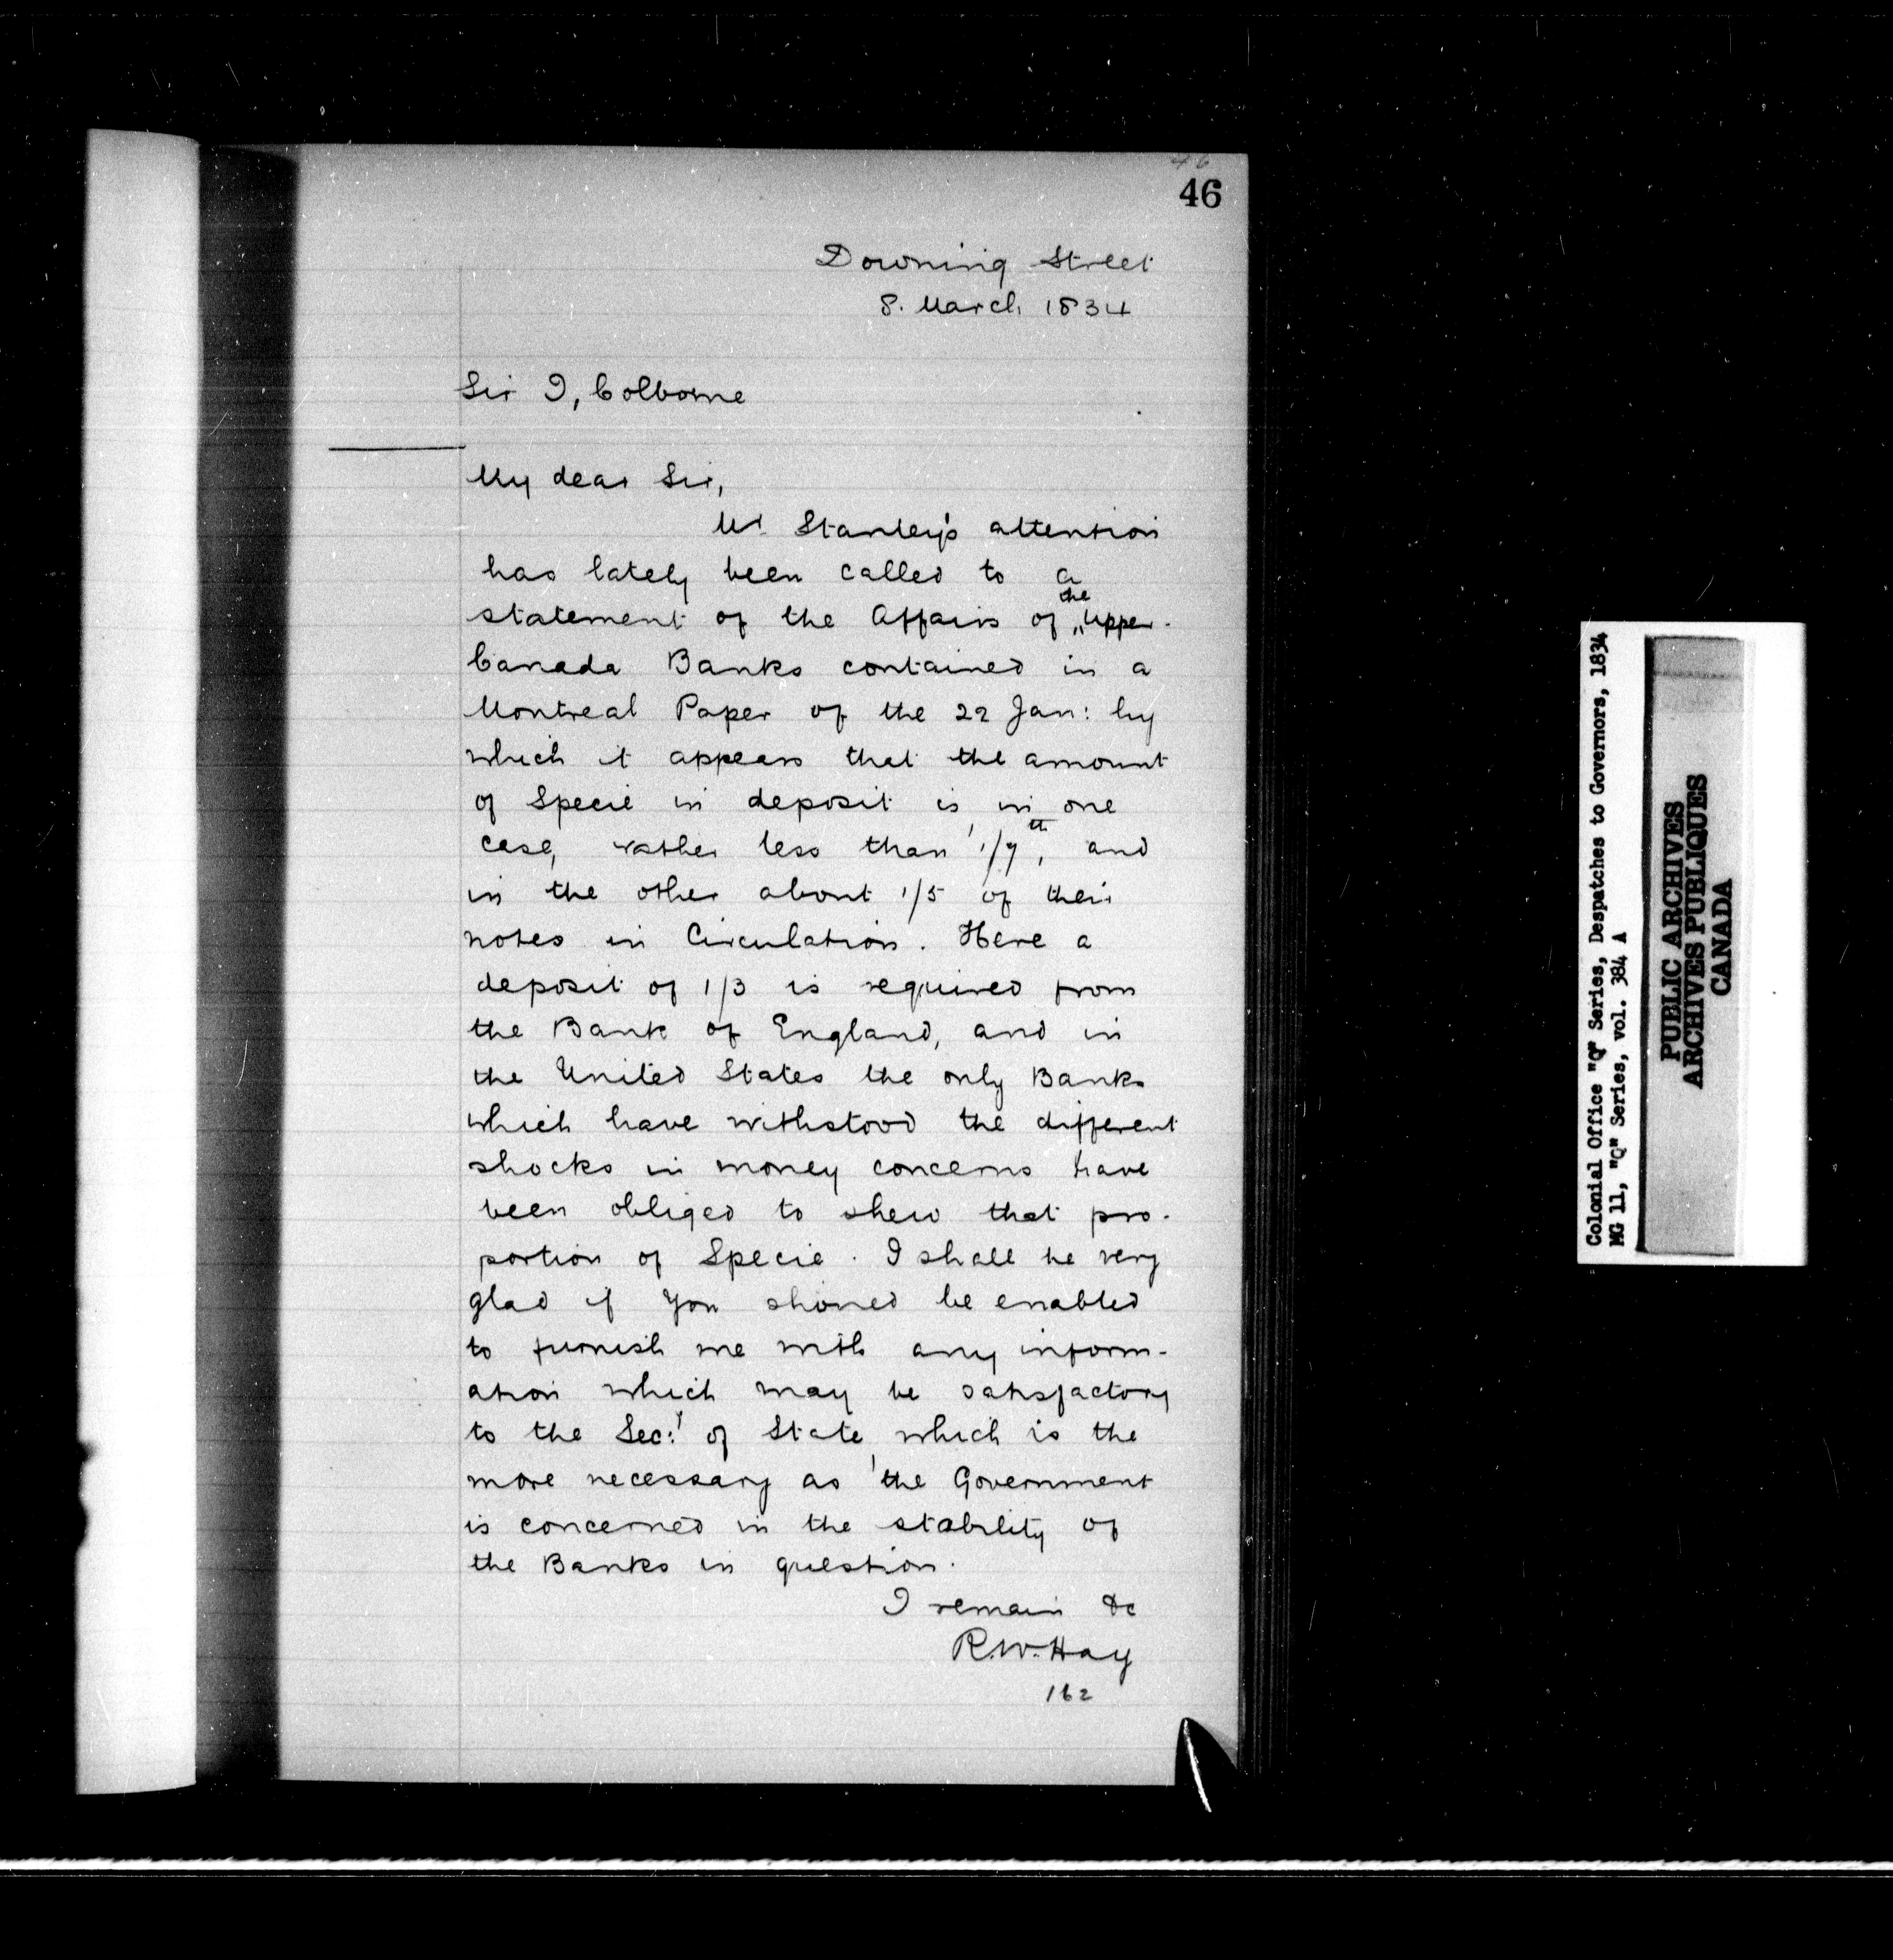 46
46
Downing Street
8. March 1834
Sir J, Colborne
My dear Sir,
Mr. Stanley's attention
has lately been called to a
statement of the Affairs of the Upper-
Canada Banks contained in a
Montreal Paper of the 22 Jan: by
which it appears that the amount
of Specie in deposit is, in one
case, rather less than 1/7th, and
in the other about 1/5 of their
notes in Circulation. Here a
deposit of 1/3 is required from
the Bank of England, and in
the United States the only Banks
which have withstood the different
shocks in money concerns have
been obliged to shew that pro-
portion of Specie. I shall be very
glad if you should be enabled
to furnish me with any inform-
ation which may be satisfactory
to the Sec:y of State, which is the
more necessary as the Government
is concerned in the stability of
the Banks in question.
I remain &c
R.W. Hay
162
Colonial Office "Q" Series, Despatches to Governors, 1834
MG 11, "Q" Series, vol. 384 A
PUBLIC ARCHIVES
ARCHIVES PUBLIQUES
CANADA